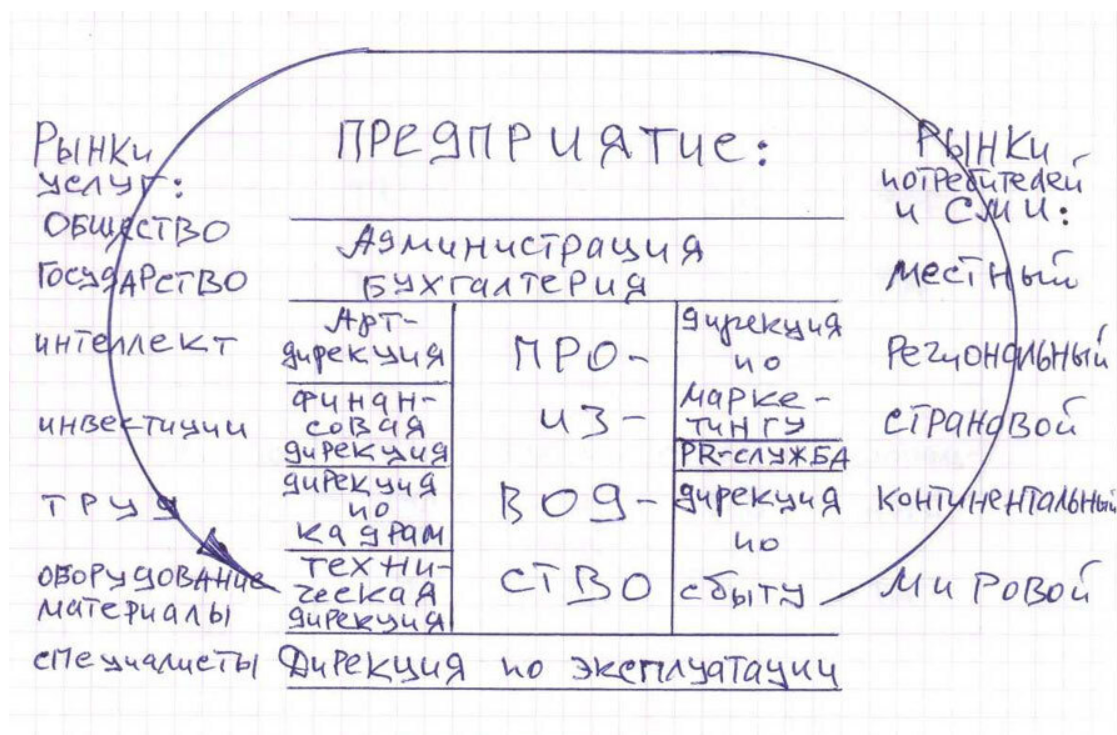 ПРЕДПРИЯТИЕ:
Рынки
услуг:
ОБЩЕСТВО
ГОСУДАРСТВО
интеллект
инвестиции
труд
оборудование
материалы
специалисты
Администрация
Бухгалтерия
Арт-
дирекция
финан-
совая
дирекция
дирекция
по
кадрам
техни-
ческая
дирекция
ПРО-
ИЗ-
ВОД-
СТВО
дирекция
по
марке-
тингу
PR-служба
дирекция
по
сбыту
Дирекция по эксплуатации
Рынки
потребителей
и СМИ:
местный
Региональный
страновой
континентальный
мировой